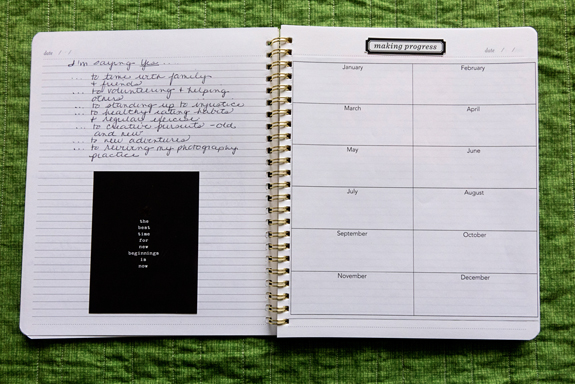 date / /
I'm saying yes.....
... to time with family
& friends
... to volunteering & helping
others
... to standing up to injustice
... to healthy eating habits
& regular exercise
... to creative pursuits - old
and new
... to new adventures
... to reviving my photography
practice
the
best
time
for
new
beginnings
is
now
making progress
date / /
January February
March April
May June
July August
September October
November December